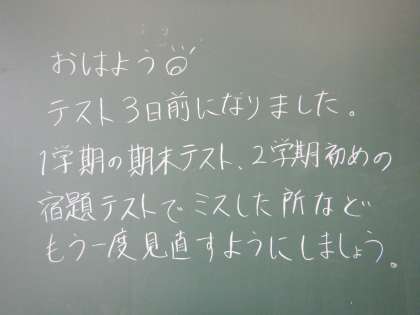 おはよう
テスト3日前になりました。
1学期の期末テスト、2学期初めの
宿題テストでミスした所など
もう一度見直すようにしましょう。